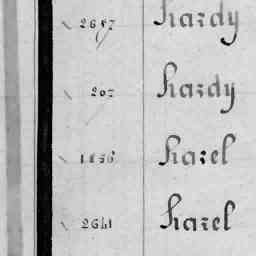 2687 Hardy
207 Hardy
1836 Hazel
2641 Hazel